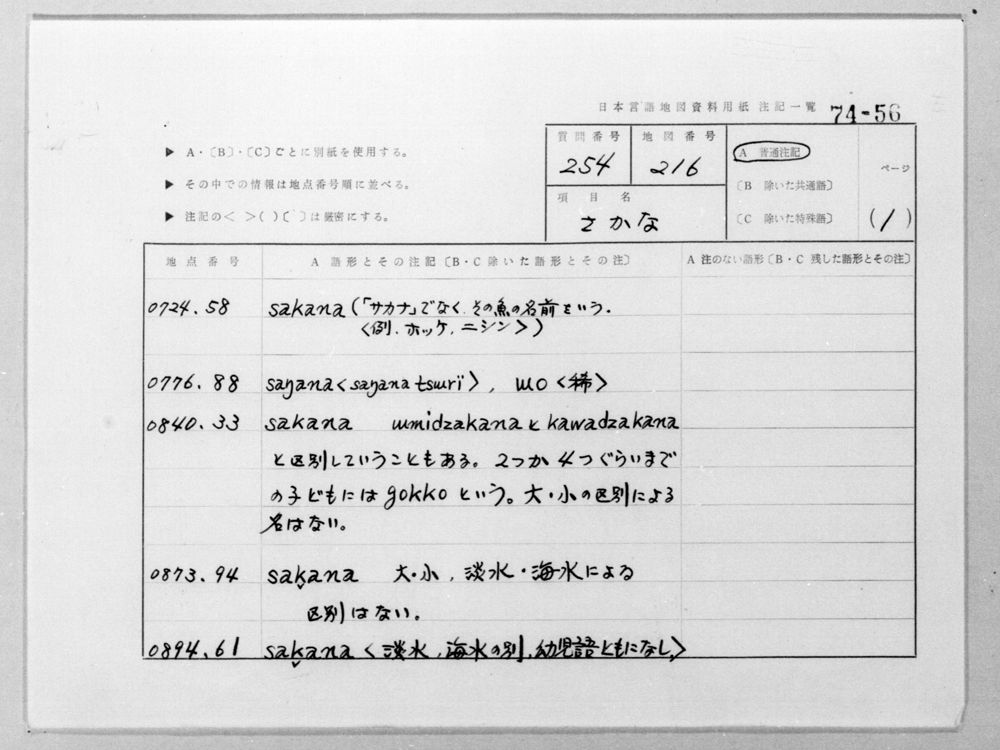 日本言語地図資料用紙 注記一覧 74-56
▶ A・〔B〕・〔C〕ごとに別紙を使用する。
▶ その中での情報は地点番号順に並べる。
▶ 注記の< >( )〔 〕は厳密にする。
質問番号 254
地図番号 216
項目名 さかな
A 普通注記
〔B 除いた共通語〕
〔C 除いた特殊語〕
ページ
(1)
地点番号 A 語形とその注記〔B・C 除いた語形とその注〕 A 注のない語形〔B・C 残した語形とその注〕
0724.58 sakana(「サカナ」でなく、その魚の名前をいう.
<例.ホッケ,ニシン>)
0776.88 saŋana<saŋanatsurï>, ɯo<稀>
0840.33 sakana ɯmidzakanaとkawadzakana
と区別していうこともある。2つか4つぐらいまで
の子どもにはgokkoという。大・小の区別による
名はない。
0873.94 sak̬ana 大・小,淡水・海水による
区別はない。
0894.61 sak̬ana<淡水,海水の別,幼児語ともになし,>